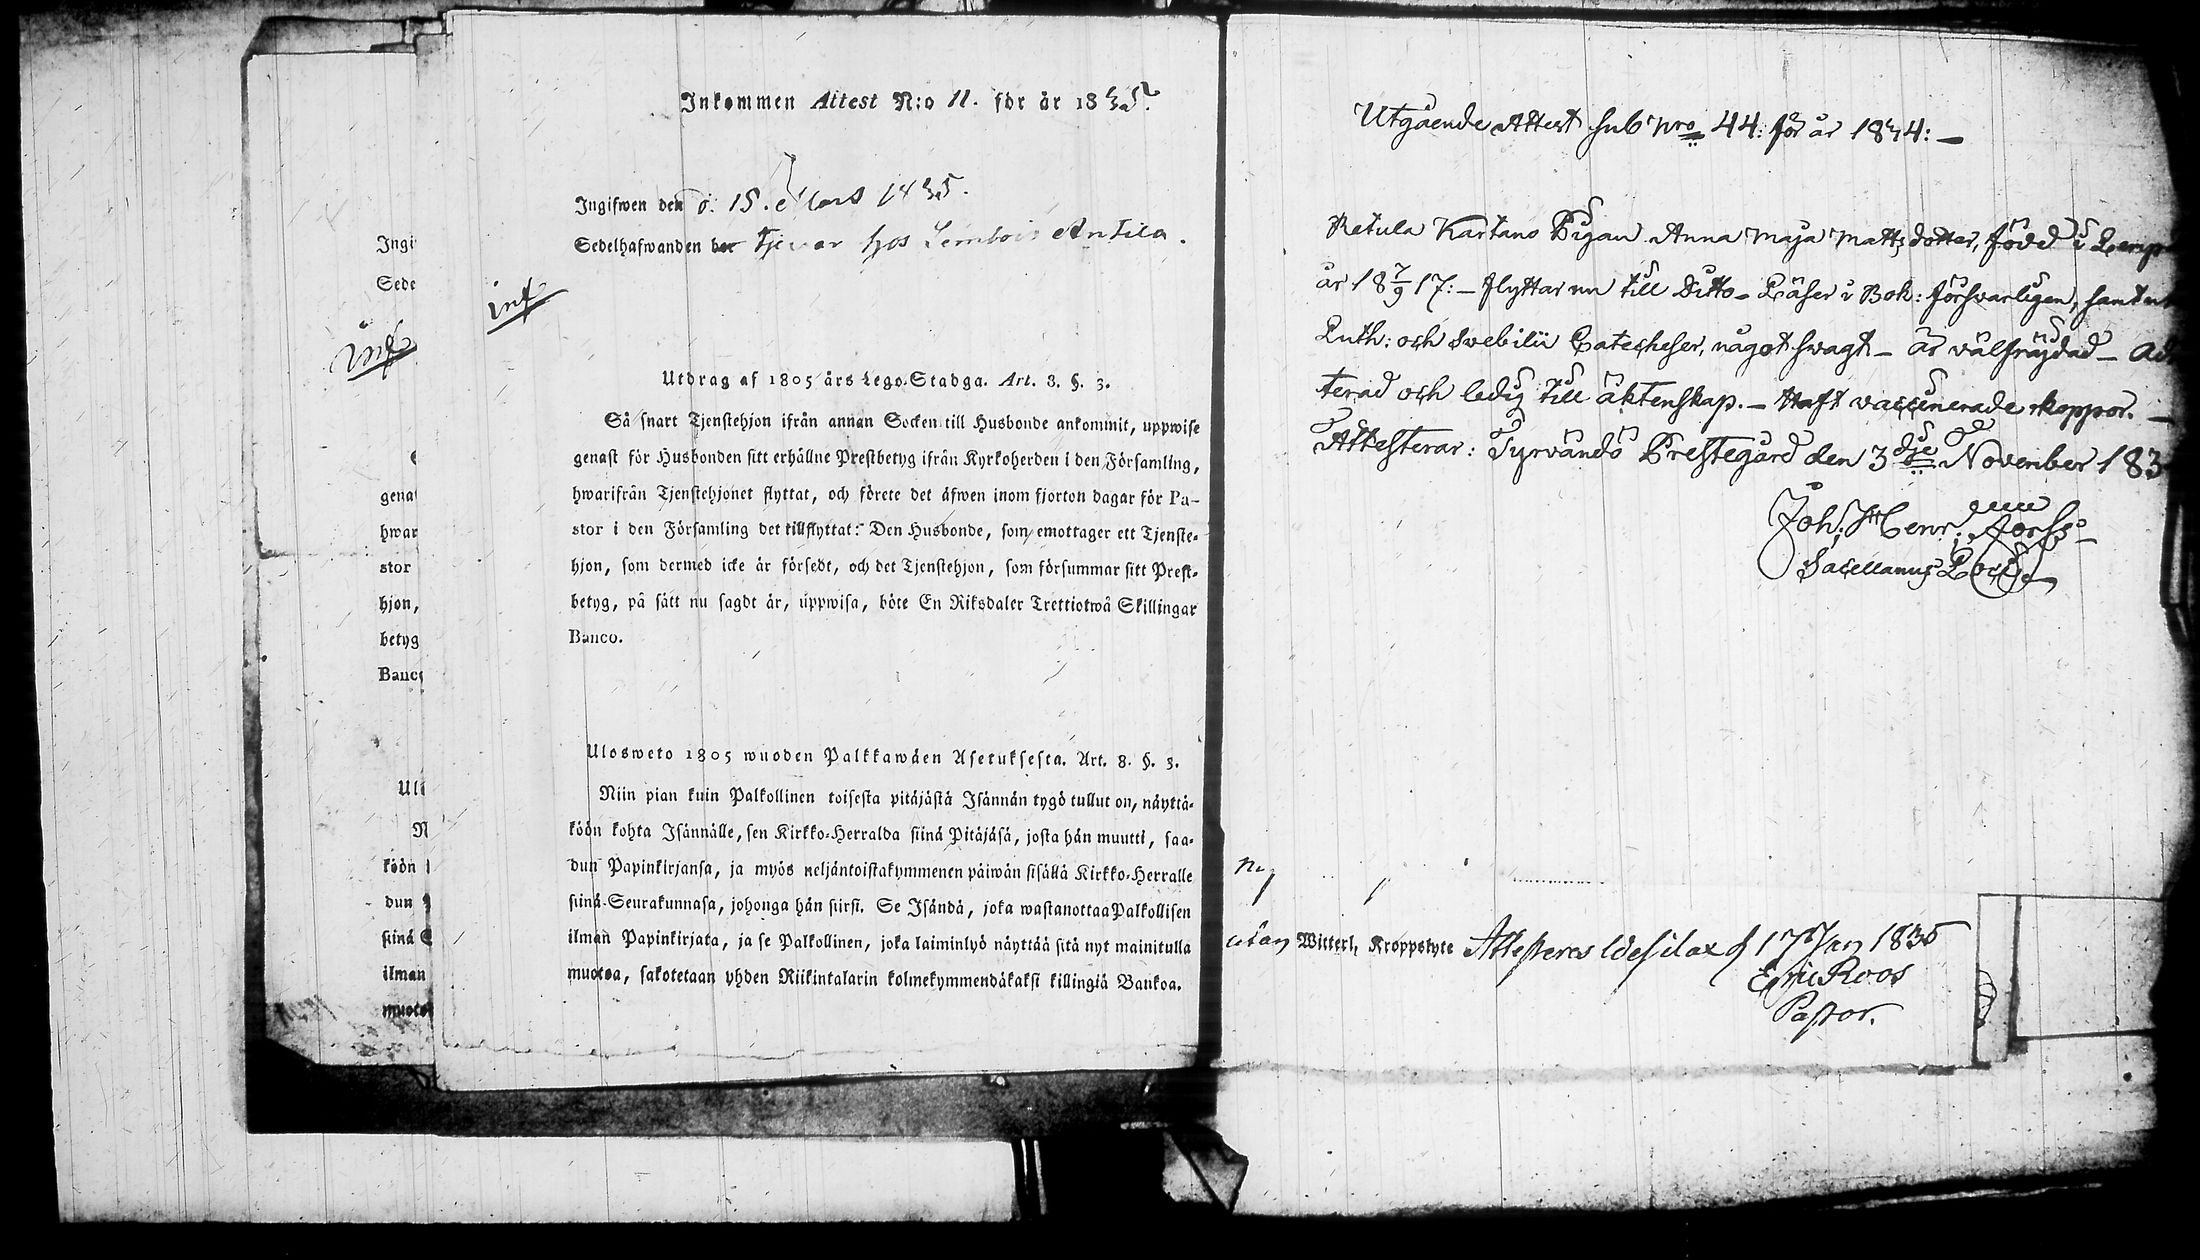 Inkommen Attest N:o 11. för år 1835.
Ingifwen den d. 15. Mars 1835.
Sedelhafwanden bor Tjenar hos Lembois Antila.
inf
Utdrag af 1805 års Lego-Stadga. Art. 8. §. 3.
Så snart Tjenstehjon ifrån annan Socken till Husbonde ankommit, uppwise
genast för Husbonden sitt erhållne Prestbetyg ifrån Kyrkoherden i den Församling,
hwarifrån Tjenstehjonet flyttat, och förete det äfwen inom fjorton dagar för Pa-
stor i den Församling det tillflyttat: Den Husbonde, som emottager ett Tjenste-
hjon, som dermed icke är försedt, och det Tjenstehjon, som försummar sitt Prest-
betyg, på sätt nu sagdt är, uppwisa, böte En Riksdaler Trettiotwå Skillingar
Banco.
Ulosweto 1805 wuoden Palkkawäen Asetuksesta. Art. 8. §. 3.
Niin pian kuin Palkollinen toisesta pitäjästä Isännän tygö tullut on, näyttä-
köön kohta Isännälle, sen Kirkko-Herralda siinä Pitäjäsä, josta hän muutti, saa-
dun Papinkirjansa, ja myös neljäntoistakymmenen päiwän sisällä Kirkko-Herralle
siinä Seurakunnasa, johonga hän siirsi. Se Isändä, joka wastanottaa Palkollisen
ilman Papinkirjata, ja se Palkollinen, joka laiminlyö näyttää sitä nyt mainitulla
muotoa, sakotetaan yhden Riikintalarin kolmekymmendäkaksi killingiä Bankoa.
Ingi
Sede
inf
gena
hwar
stor
hjon,
betyg
Banco
köön
dun
siinä
ilman
muoto
Utgående Attest sub nro 44: för år 1834: —
Retula Kartano Pigan Anna Maja Mattsdotter, född i Lemp
år 18 7/9 17: — flyttar nu till Ditto — Läser i Bok: försvarligen, samt ut
Luth: och Svebilii Catecheser, något swagt — är välfräjdad — Ad
terad och ledig till äktenskap. — Haft vaccinerade koppor. —
Attesterar: Tyrvändö Prestegård den 3dje November 183
Joh: Henr: Forss
Sacellanus Loci
utan Witterl. Kroppslyte Attesteras Wesilax d 17 Jan 1835
Eric Roos
Pastor.